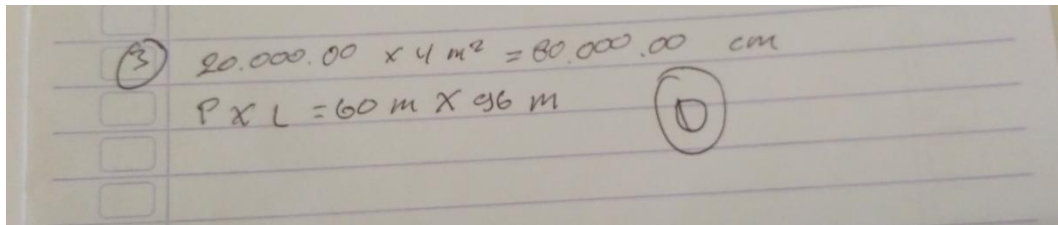 3 20.000.00 x 4 m² = 80.000.00 cm
P X L = 60 m X 96 m D